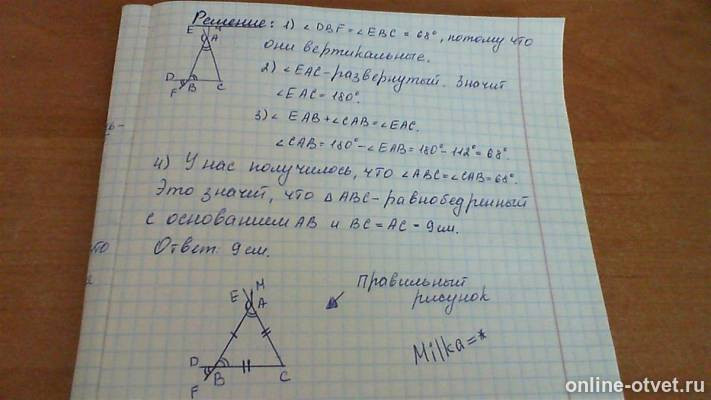 Решение: 1) ∠DBF = ∠EBC = 68°, потому что
они вертикальные.
2) ∠EAC - развернутый. Значит
∠EAC = 180°.
3) ∠EAB + ∠CAB = ∠EAC.
∠CAB = 180° - ∠EAB = 180° - 112° = 68°.
4) У нас получилось, что ∠ABC = ∠CAB = 68°.
Это значит, что △ABC - равнобедренный
с основанием AB и BC = AC = 9 см.
Ответ: 9 см.
E M
A
D B C
F
Правильный
рисунок
M
E A
D B C
F
Milka=*
online-otvet.ru